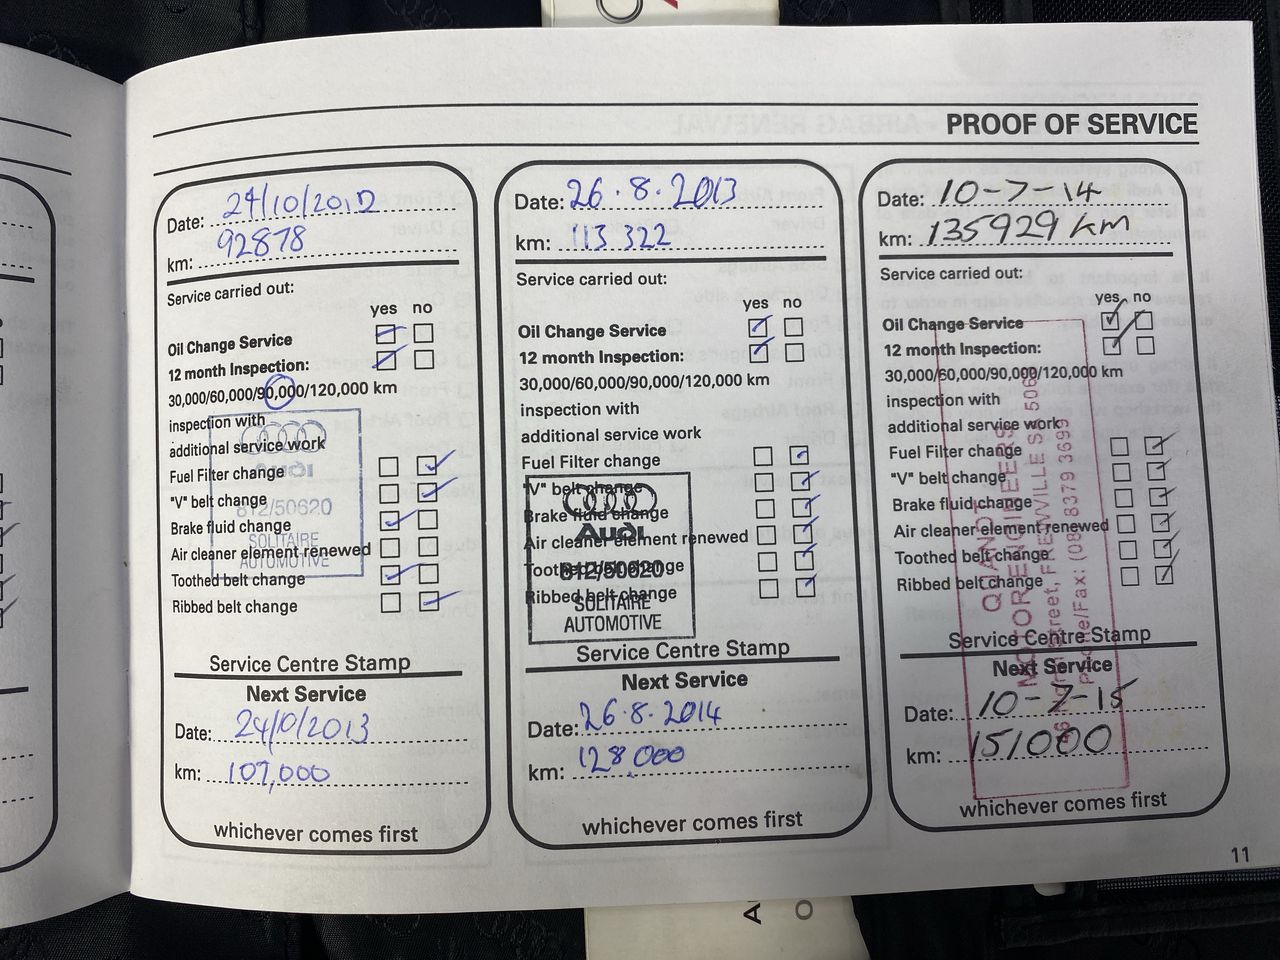 PROOF OF SERVICE
Date: 24/10/2012
km: 92878
Service carried out:
yes no
Oil Change Service
12 month Inspection:
30,000/60,000/90,000/120,000 km
inspection with
additional service work
Fuel Filter change
"V" belt change
Brake fluid change
Air cleaner element renewed
Toothed belt change
Ribbed belt change
Audi
812/50620
SOLITAIRE
AUTOMOTIVE
Service Centre Stamp
Next Service
Date: 24/10/2013
km: 107,000
whichever comes first
Date: 26.8.2013
km: 113 322
Service carried out:
yes no
Oil Change Service
12 month Inspection:
30,000/60,000/90,000/120,000 km
inspection with
additional service work
Fuel Filter change
"V" belt change
Brake fluid change
Air cleaner element renewed
Toothed belt change
Ribbed belt change
Audi
812/50620
SOLITAIRE
AUTOMOTIVE
Service Centre Stamp
Next Service
Date: 26.8.2014
km: 128,000
whichever comes first
Date: 10-7-14
km: 135929 KM
Service carried out:
yes no
Oil Change Service
12 month Inspection:
30,000/60,000/90,000/120,000 km
inspection with
additional service work
Fuel Filter change
"V" belt change
Brake fluid change
Air cleaner element renewed
Toothed belt change
Ribbed belt change
QUANDT
MOTOR ENGINEERS
Street, FREWVILLE S 506
Phone/Fax: (08) 8379 3699
Service Centre Stamp
Next Service
Date: 10-7-15
km: 151000
whichever comes first
11